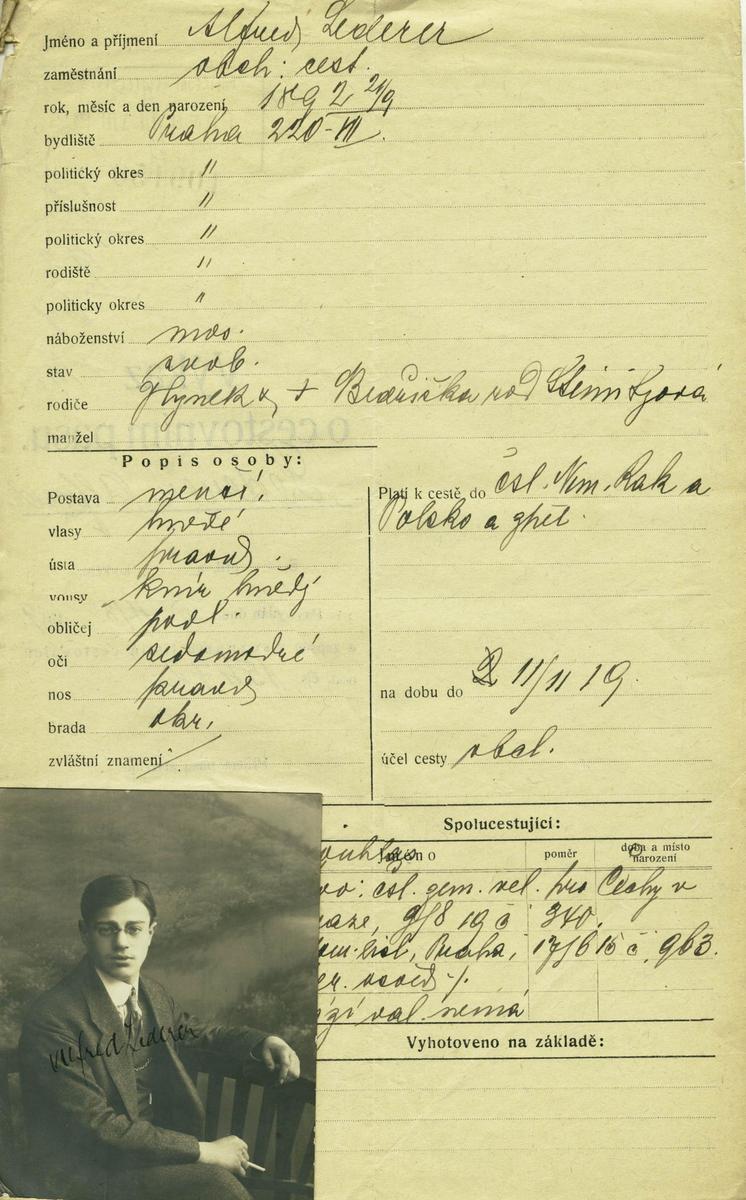 Jméno a příjmení Alfred Lederer
zaměstnání obch: cest.
rok, měsíc a den narození 1892 21/9
bydliště Praha 220-III.
politický okres "
příslušnost "
politický okres "
rodiště "
politicky okres "
náboženství mos.
stav svob.
rodiče Hynek & + Bedřiška rod
manžel
Popis osoby:
Postava menší
vlasy hnědé
ústa pravid.
vousy knír hnědý
obličej podl.
oči šedomodré
nos pravid
brada okr.
zvláštní znamení /
Platí k cestě do čsl. Něm. Rak a
Polsko a zpět.
na dobu do 11/11 19.
účel cesty obch.
Spolucestující:
Jméno poměr doba a místo narození
čsl. gem. vel. pro Čechy v
9/8 19 č 340.
Praha, 17/6 15 č. 963.
val. nemá
Vyhotoveno na základě:
Alfred Lederer